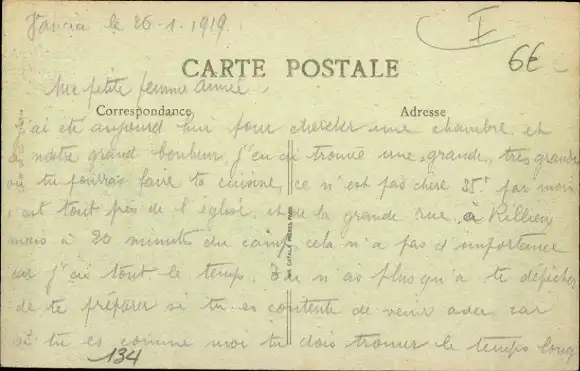 Vancia le 26-1-1919.
I
6€
CARTE POSTALE
Ma petite femme aimée,
Correspondance
Adresse
j'ai été aujourd'hui pour chercher une chambre, et
à notre grand bonheur j'en ai trouvé une grande, très grande
où tu pourrais faire ta cuisine, ce n'est pas chère 35f par mois
c'est tout près de l'église, et de la grande rue, à Rillieux
mais à 20 minutes du camp cela n'a pas d'importance
car j'ai tout le temps. Tu n'as plus qu'a te dépécher
de te préparer si tu es contente de venir avec car
si tu es comme moi tu dois trouver le temps long
134